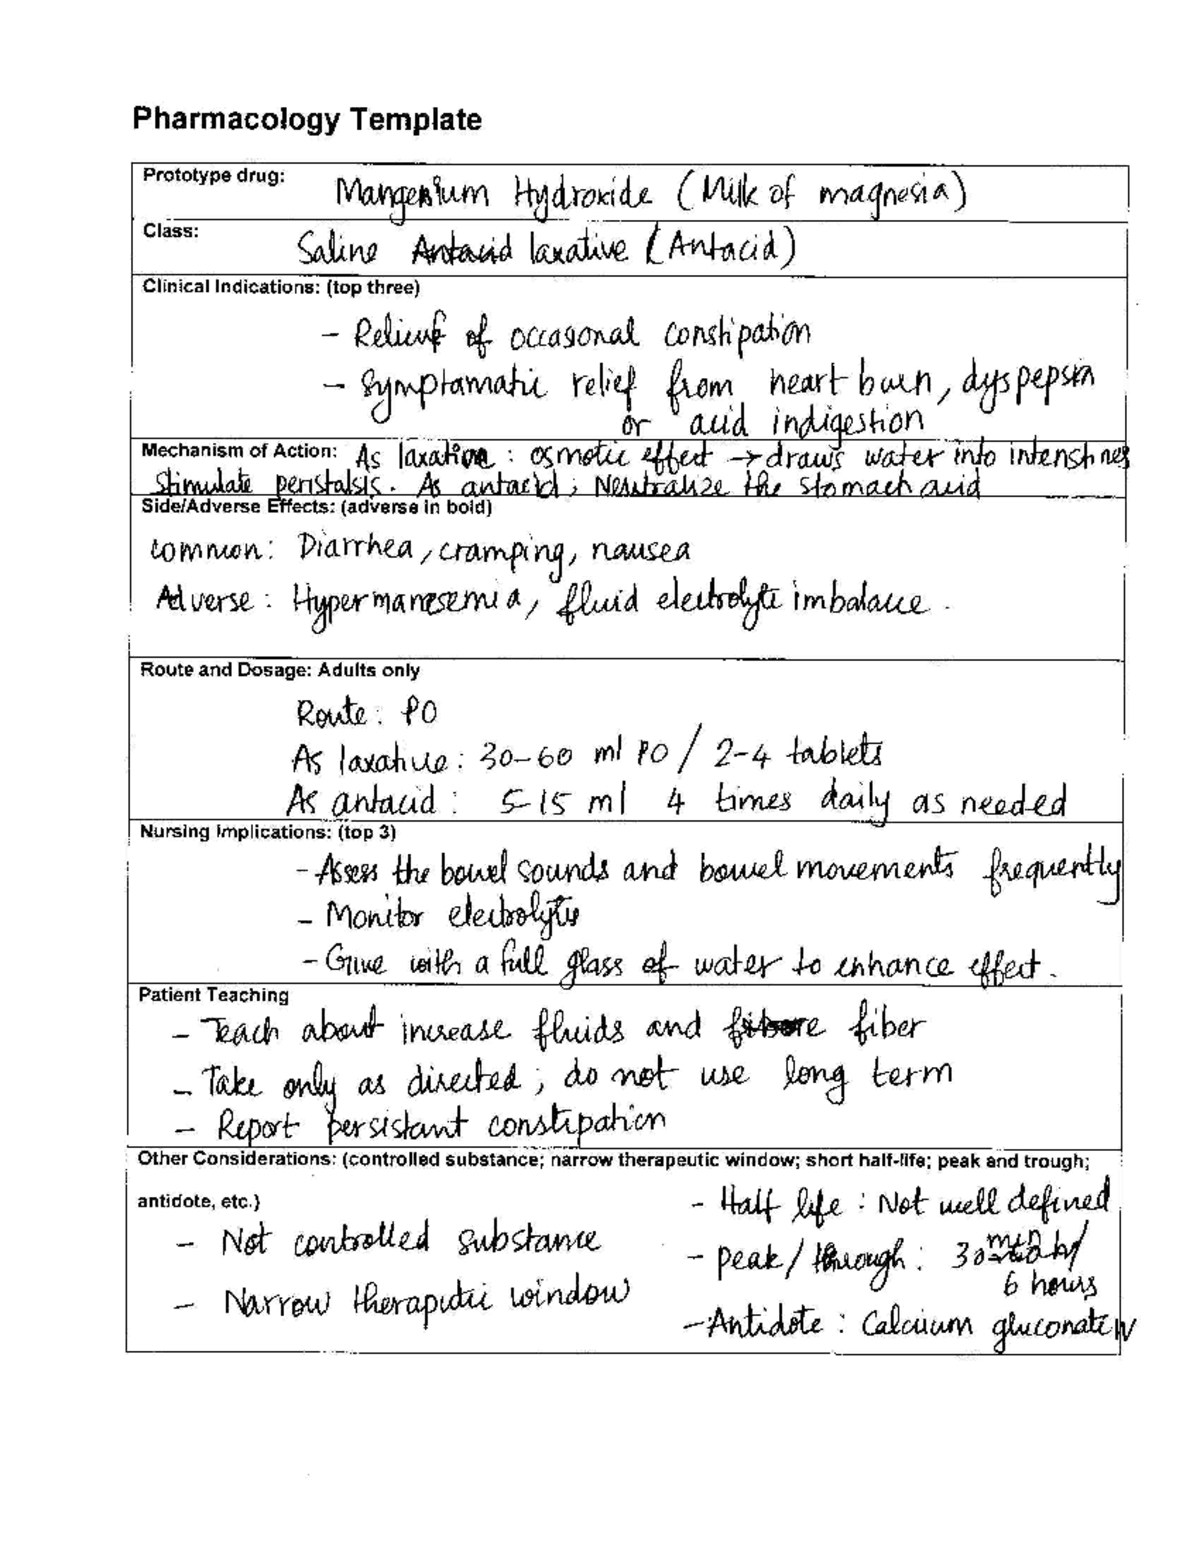 Pharmacology Template
Prototype drug: Mangenium Hydroxide (Milk of magnesia)
Class: Saline Antacid laxative (Antacid)
Clinical Indications: (top three)
- Relieuf of occasonal constipation
- Symptamatic relief from heart burn, dyspepsia
or acid indigestion
Mechanism of Action: As laxative : osmotic effect → draws water into intenstines
Stimulate peristalsis. As antacid ; Neutralize the stomach acid
Side/Adverse Effects: (adverse in bold)
common: Diarrhea, cramping, nausea
Adverse : Hypermanesemia, fluid electrolyte imbalance .
Route and Dosage: Adults only
Route : PO
As laxative : 30-60 ml PO / 2-4 tablets
As antacid : 5-15 ml 4 times daily as needed
Nursing Implications: (top 3)
- Assess the bowel sounds and bowel movements frequently
- Monitor electrolytes
- Give with a full glass of water to enhance effect.
Patient Teaching
- Teach about increase fluids and fiber
- Take only as directed ; do not use long term
- Report persistant constipation
Other Considerations: (controlled substance; narrow therapeutic window; short half-life; peak and trough;
antidote, etc.)
- Not controlled substance
- Narrow theraputic window
- Half life : Not well defined
- Peak / through : 30 min /
6 hours
- Antidote : Calcium gluconate IV